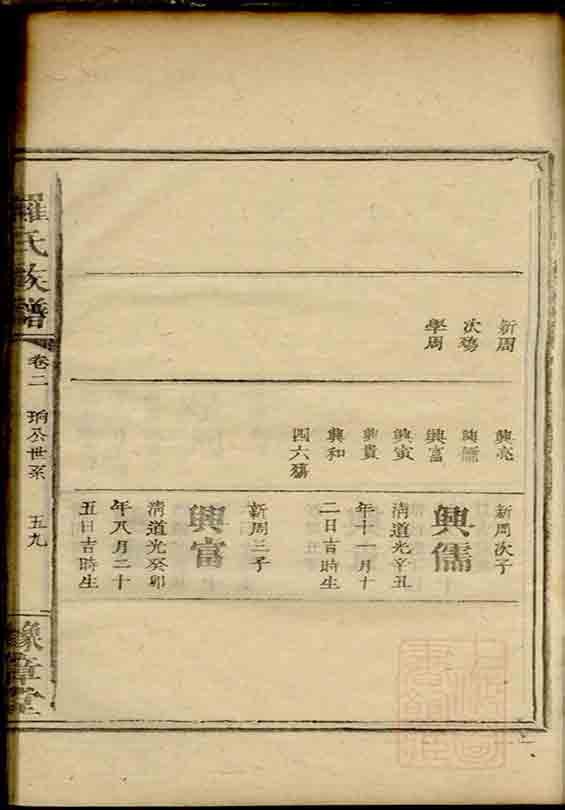 新周
次殤
學周
興亮
興儒
興富
興寅
興貴
興和
四六殤
新周次子
興儒
清道光辛丑
年十一月十
二日吉時生
新周三子
興富
清道光癸卯
年八月二十
五日吉時生
羅氏族譜
卷二
珦公世系
五九
豫章堂